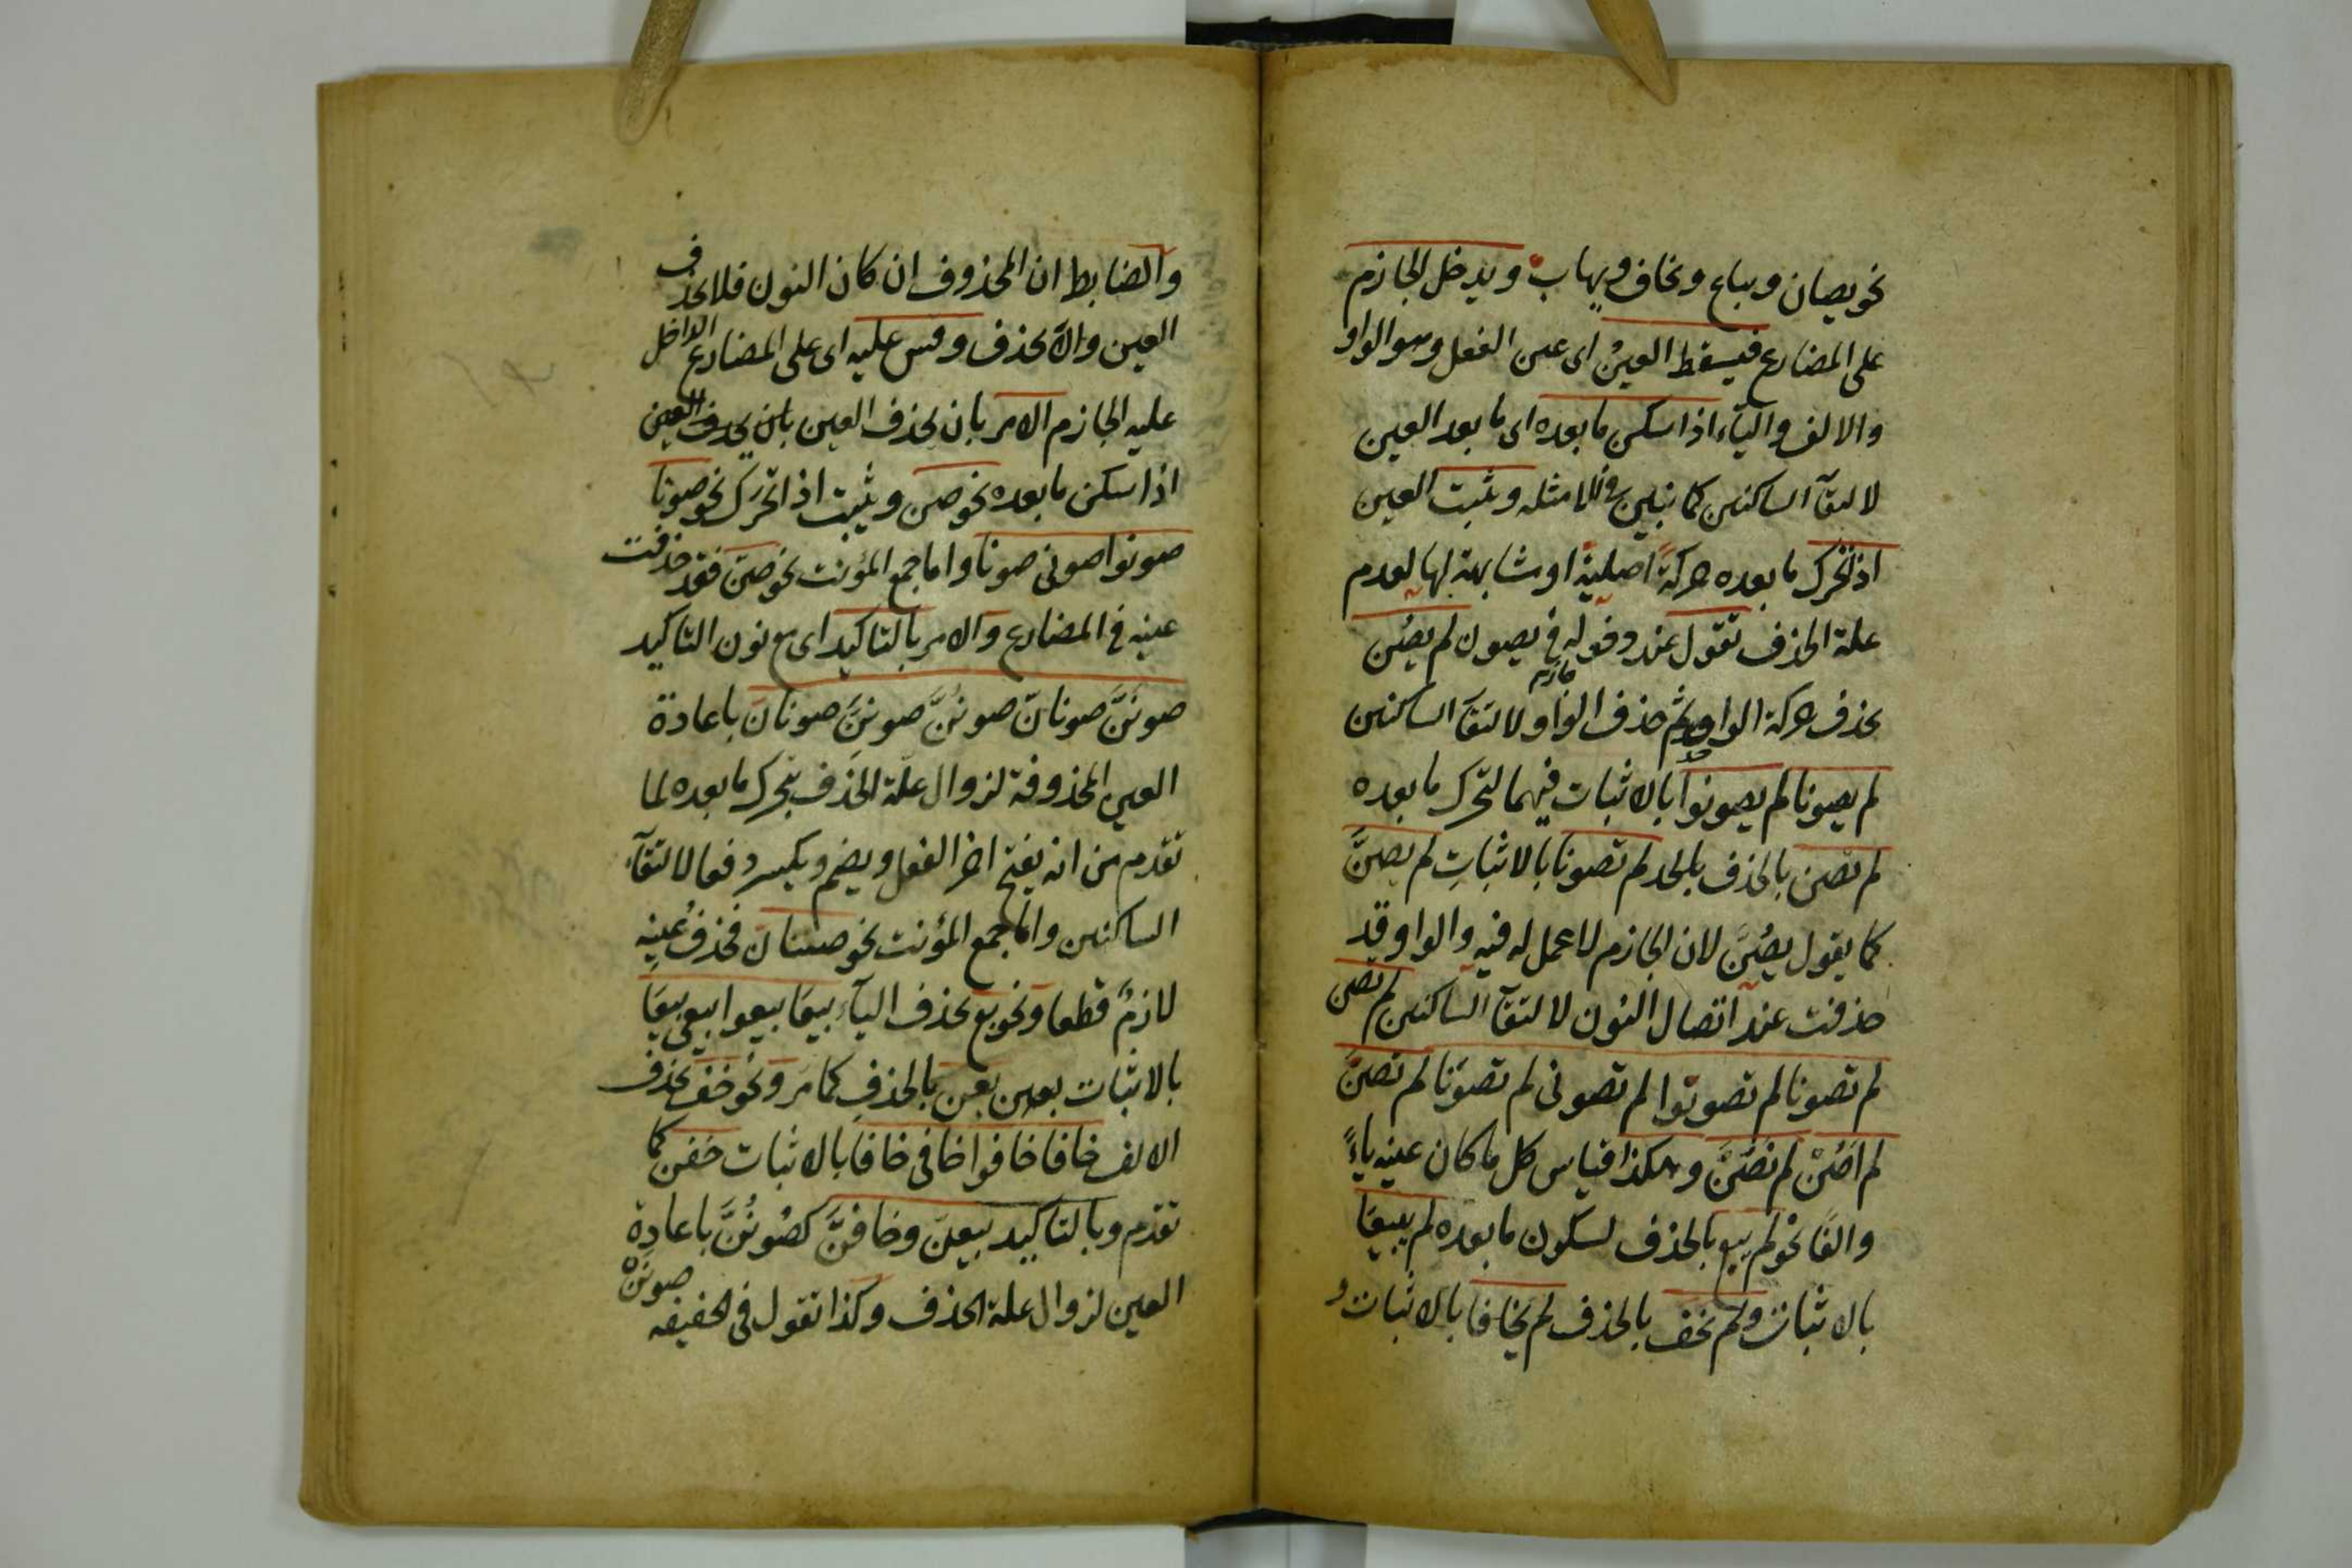 نحو يصان ويباع ويخاف ويهاب ويدخل الجازم
على المضارع فيسقط العينُ اى عين الفعل وهو الواو
والالف والياء اذا سكن ما بعده اى ما بعد العين
لالتقآ الساكنين كما تبين فى مثله ويثبت العين
اذا تحرك ما بعده حركةً اصليةً او مشابهة لها لعدم
علة الحذف تقول عند دخوله فى يصون لم يصُن
بحذف حركة الواو ثم حذف الواو لالتقآ الساكنين
لم يصونا لم يصونوا بالاثبات فيهما لتحرك ما بعده
لم تصن بالحذف لم تصونا بالاثباتِ لم يصنَّ
كما يقول يصُنَّ لان الجازم لا عمل له فيه والواو قد
حذفت عند اتصال النون لالتقآ الساكنين لم تصن
لم تصونا لم تصونوا لم تصونى لم تصونا لم تصنَّ
لم اصُنْ لم نصُنْ وهكذا قياس كل ما كان عينه ياءً
والفًا نحو لم يبع بالحذف لسكون ما بعده لم يبيعَا
بالاثبات ولم يخف بالحذف لم يخافا بالاثبات و
والضابط ان المحذوف ان كان النون فلا يحذف
العين والّا يحذف وقس عليه اى على المضارع الداخل
عليه الجازم الامر بان يحذف العين بان يحذف العين
اذا سكن ما بعده نحو صن ويثبت اذا تحرك نحو صونا
صونوا صونى صونا واما جمع المؤنث نحو صنّ فقد حذفت
عينه فى المضارع والامر بالتاكيد اى مع نون التاكيد
صوننَّ صونانّ صونُنَّ صونِنَّ صونانّ باعادة
العين المحذوفة لزوال علّة الحذف بتحرك ما بعده لما
تقدم من انه يفتح اخر الفعل ويضم ويكسر دفعا لالتقآء
الساكنين واما جمع المؤنث نحو صنّنانّ فحذفُ عينِه
لازمٌ قطعا ونحو بع بحذف اليآءِ بيعَا بيعوا بيعى بيعَا
بالاثبات بعن بالحذفِ كما مرّ ونحو خف بحذف
الالف خافا خافوا خافى خافا بالاثبات خفن كما
تقدم وبالتاكيد بيعنّ وخافنَّ كصُونُنَّ باعادة
العين لزوال علة الحذف وكذا تقول فى الخفيفه صوننْ